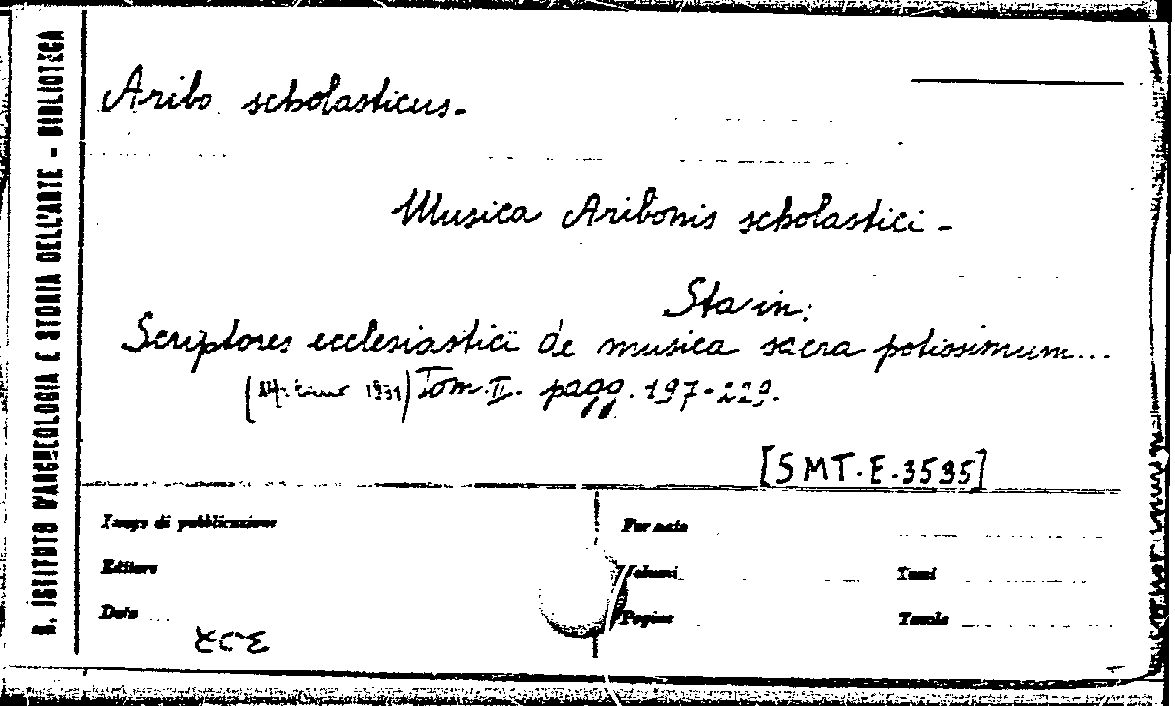 R. ISTITUTO D'ARCHEOLOGIA E STORIA DELL'ARTE - BIBLIOTECA
Aribo scholasticus -
Musica Aribonis scholastici -
Sta in:
Scriptores ecclesiastici de musica sacra potissimum...
1931) Tom. II. pagg. 197-229.
[SMT.E.3535]
Luogo di pubblicazione
Formato
Editore
Volumi
Tomi
Data
Pagine
Tavole